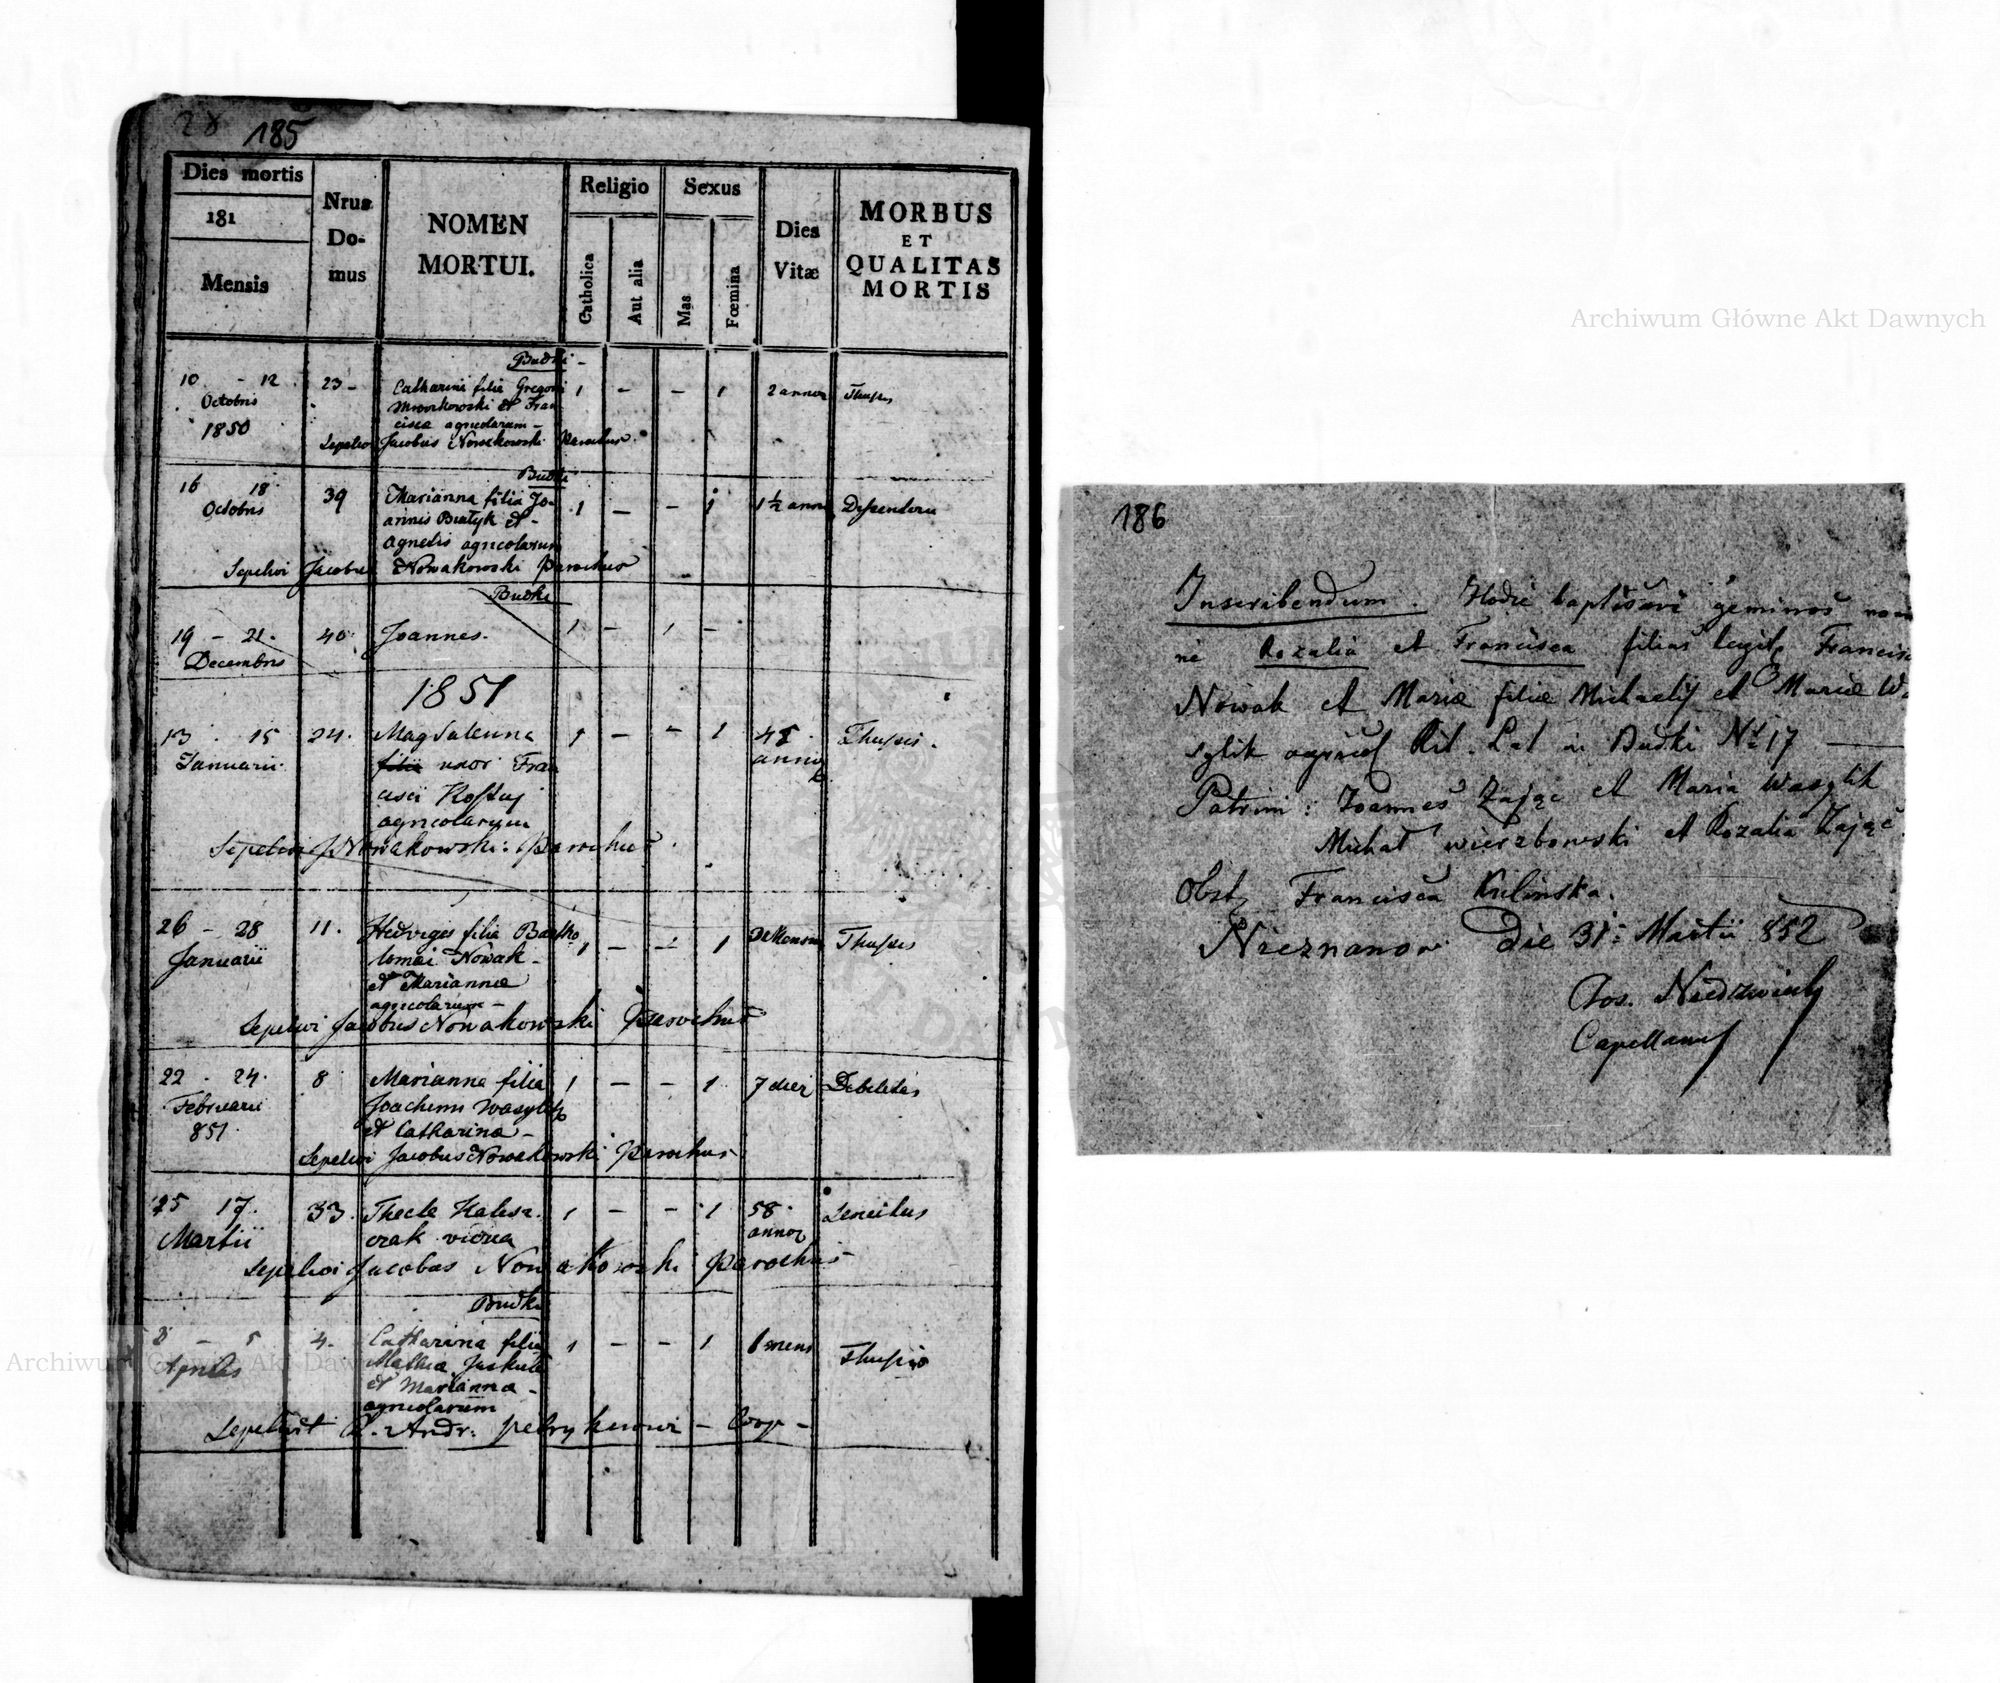 185
Dies mortis
181
Mensis
Nrus
Do-
mus
NOMEN
MORTUI.
Religio
Catholica
Aut alia
Sexus
Mas
Fœmina
Dies
Vitæ
MORBUS
ET
QUALITAS
MORTIS
Budki -
10 - 12 23 - Catharina filia Gregorii 1 - - 1 2 annor
Octobris et Fran
1850 cisca agricolarum -
Jacobus Nowakowski Parochus
Budki
16 18 39 Marianna filia Jo- 1 - - 1 1½ anni
Octobris annis et -
Agnetis agricolarum
Sepelivi Jacobus Nowakowski Parochus
Budki
19 - 21. 40. Joannes. 1 - 1 -
Decembris
1851
13 . 15 24. Magdalenna 1 - - 1
Januarii. filia uxor Fran
cisci
agricolarum
Sepelivi JNowakowski: Parochus.
26 - 28 11. Hedviges filia Bartho 1 - - 1
Januarii lomei Nowak -
et Marianna
agricolarum -
Sepelivi Jacobus Nowakowski Parochus
22 . 24. 8 Marianna filia 1 - - 1 7 dier Debilitas
Februarii Joachimi Wasylik
851. et Catharina -
Sepelivi Jacobus Nowakowski Parochus
15 17. 33. Thecla 1 - - 1 58.
Martii vidua annor
Sepelivi Jacobus Nowakowski Parochus
Budki
5 4. Catharina filia 1 - - 1
Aprilis Mathia
et Marianna -
agricolarum
Andr: - Coop -
186
Inscribendum. Hodie baptisavi geminos nomi
ne Rozalia et Francisca filias legit, Francisci
Nowak et Maria filiæ Michaelis et Mariæ Wa
sylik agricol Rit. Lat in Budki Nr 17 —
Patrini: Joannes Zając et Maria Wasylik
Michał Wierzbowski et Rozalia Zając.
Obst, Francisca Kulinska.
Nieznanow Die 31: Martii 852
Jos.
Capellanus
Archiwum Główne Akt Dawnych
Archiwum Główne Akt Dawnych